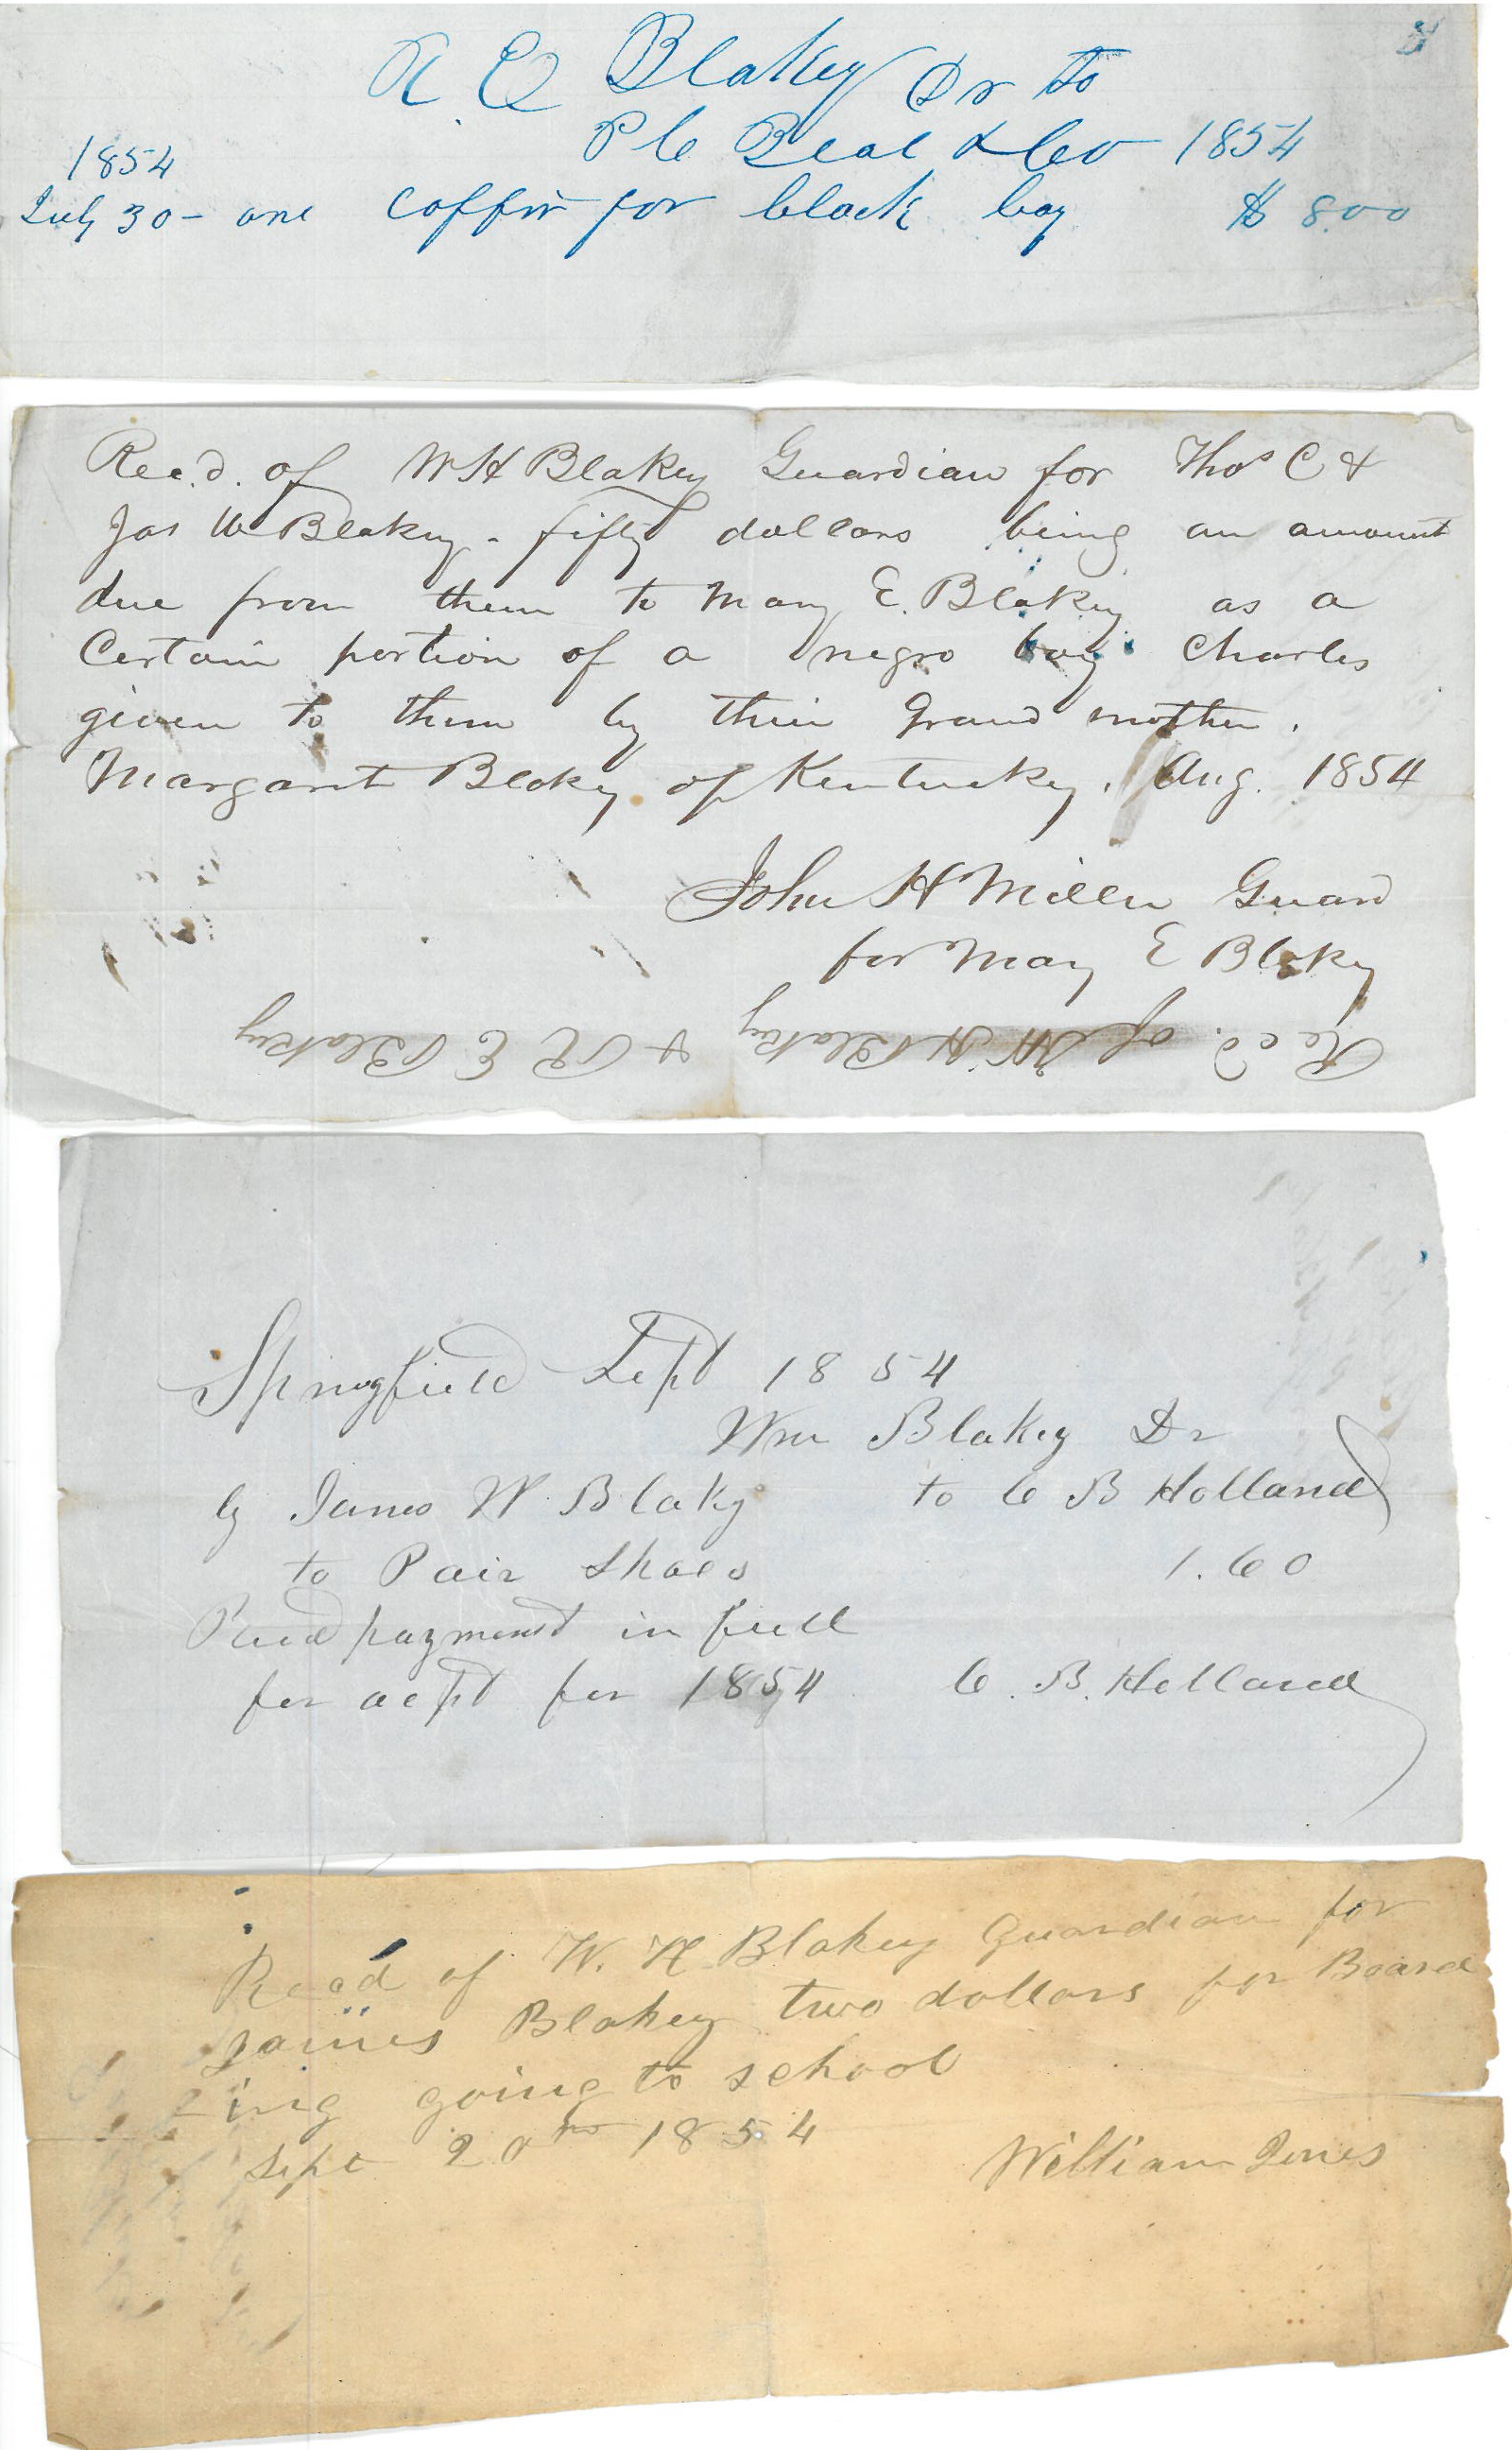 R. E Blakey Dr to
P C Beal & Co 1854
1854
July 30 - one coffin for black boy $ 8.00
Rec.d. of W H Blakey Guardian for Thos C &
Jas W Blakey - fifty dollars being an amount
due from them to Mary E. Blakey as a
Certain portion of a negro boy Charles
given to them by their Grand mother.
Margaret Blakey of Kentucky. Aug. 1854
John H Miller Guard
for Mary E Blakey
Recd. of W H Blakey & R E Blakey
Springfield Sept 1854
Wm Blakey Dr
by James W. Blaky to C B Holland
to Pair Shoes 1.60
Recd payment in full
for acpt for 1854 C. B. Holland
Recd of W. H. Blakey Guardian for
James Blakey two dollars for Board
-ing going to school
Sept 20th 1854
William Jones